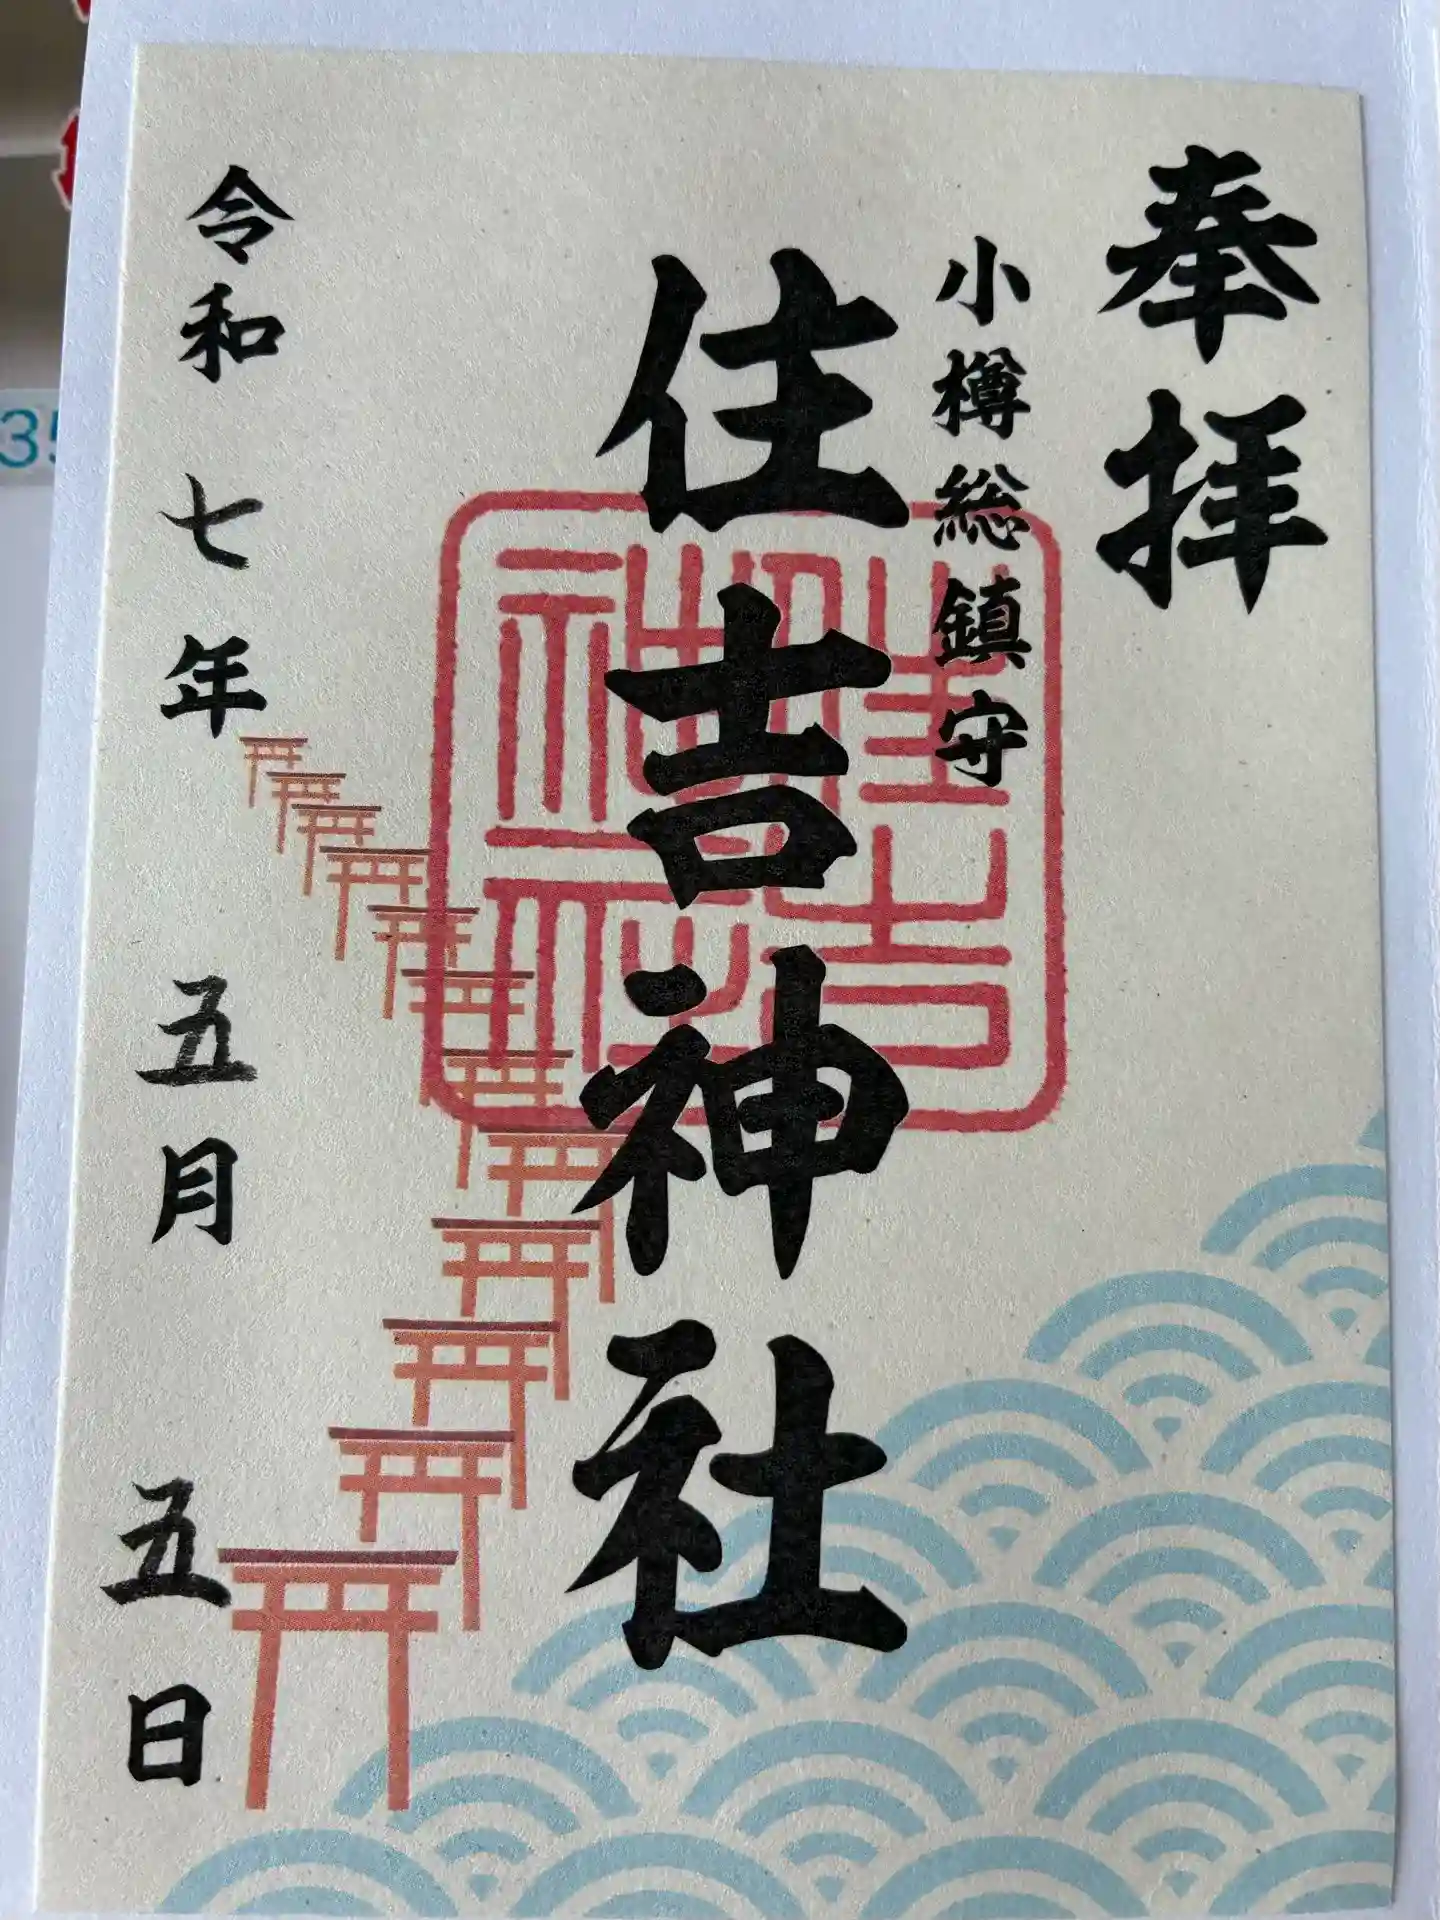 奉拝
小樽総鎮守
住吉神社
住吉神社
令和七年五月五日
35